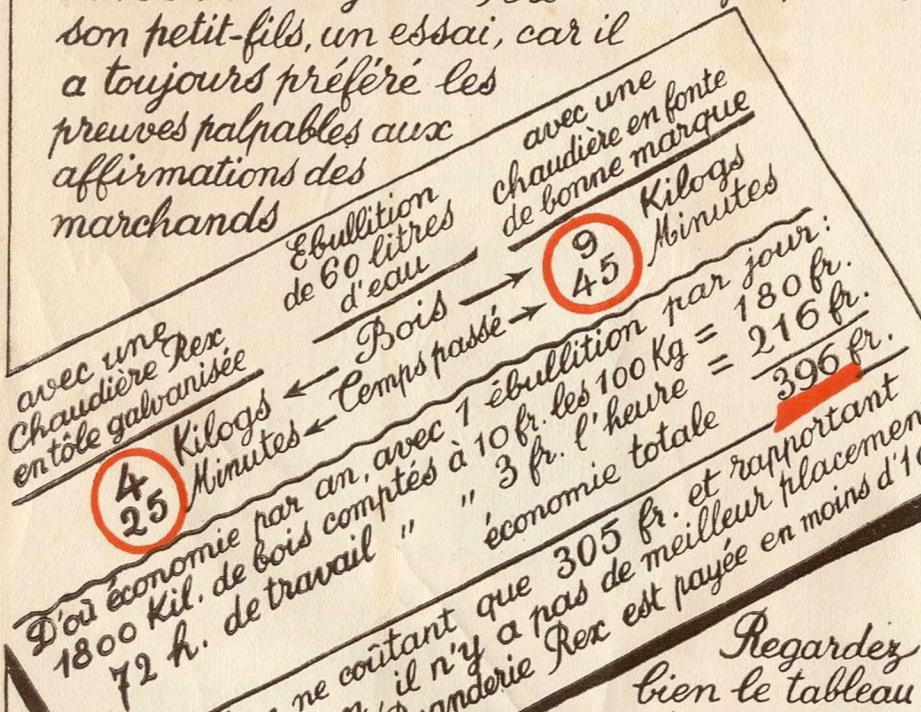 son petit-fils, un essai, car il
a toujours préféré les
preuves palpables aux
affirmations des
marchands
avec une
chaudière en fonte
de bonne marque
Ebullition
de 60 litres
d'eau
avec une
Chaudière Rex
en tôle galvanisée
4 Kilogs ← Bois → 9 Kilogs
25 Minutes ← Temps passé → 45 Minutes
D'où économie par an, avec 1 ébullition par jour:
1800 Kil. de bois comptés à 10 fr. les 100 Kg = 180 fr.
72 h. de travail " " 3 fr. l'heure = 216 fr.
économie totale 396 fr.
ne coûtant que 305 fr. et rapportant
il n'y a pas de meilleur placement
Rex est payée en moins d'1
Regardez
bien le tableau